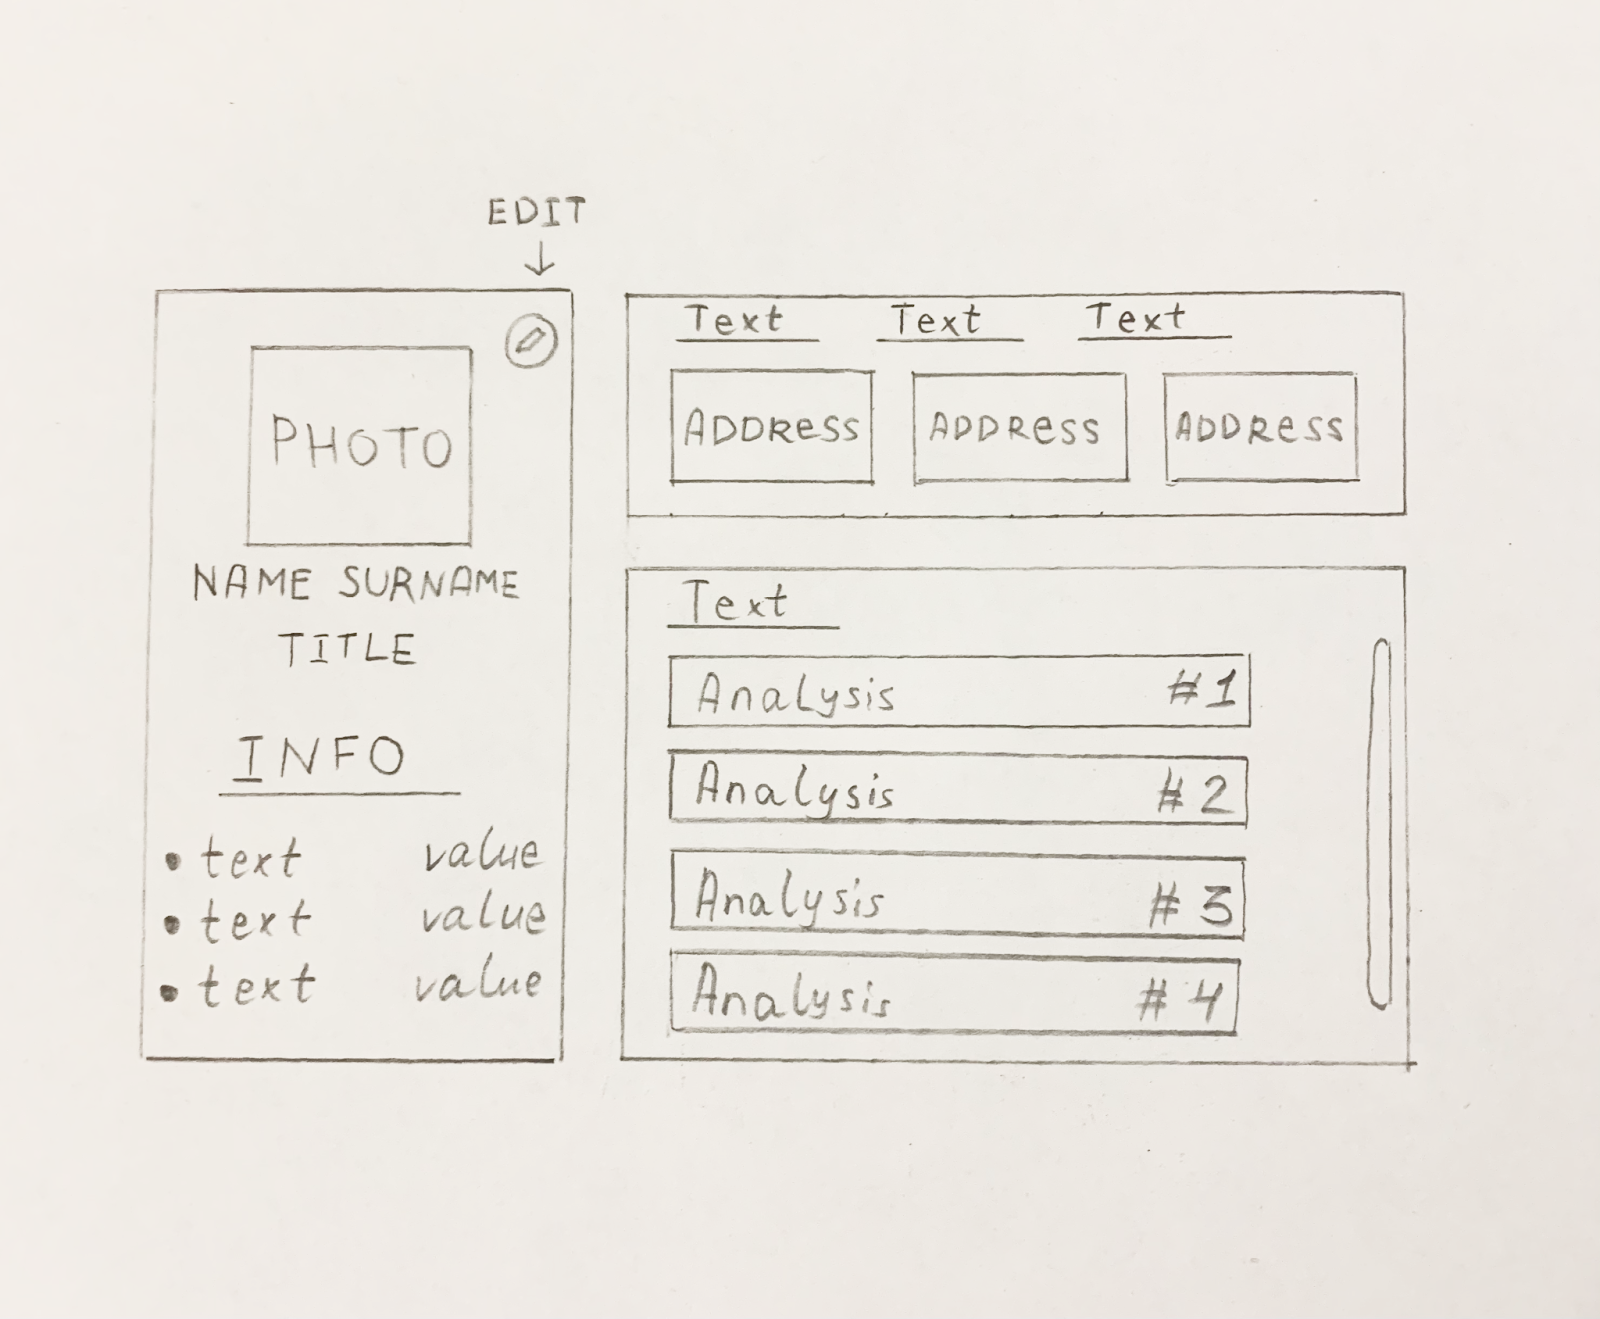 EDIT
PHOTO
NAME SURNAME
TITLE
INFO
text value
text value
text value
Text Text Text
ADDRess ADDRess ADDRess
Text
Analysis #1
Analysis #2
Analysis #3
Analysis #4